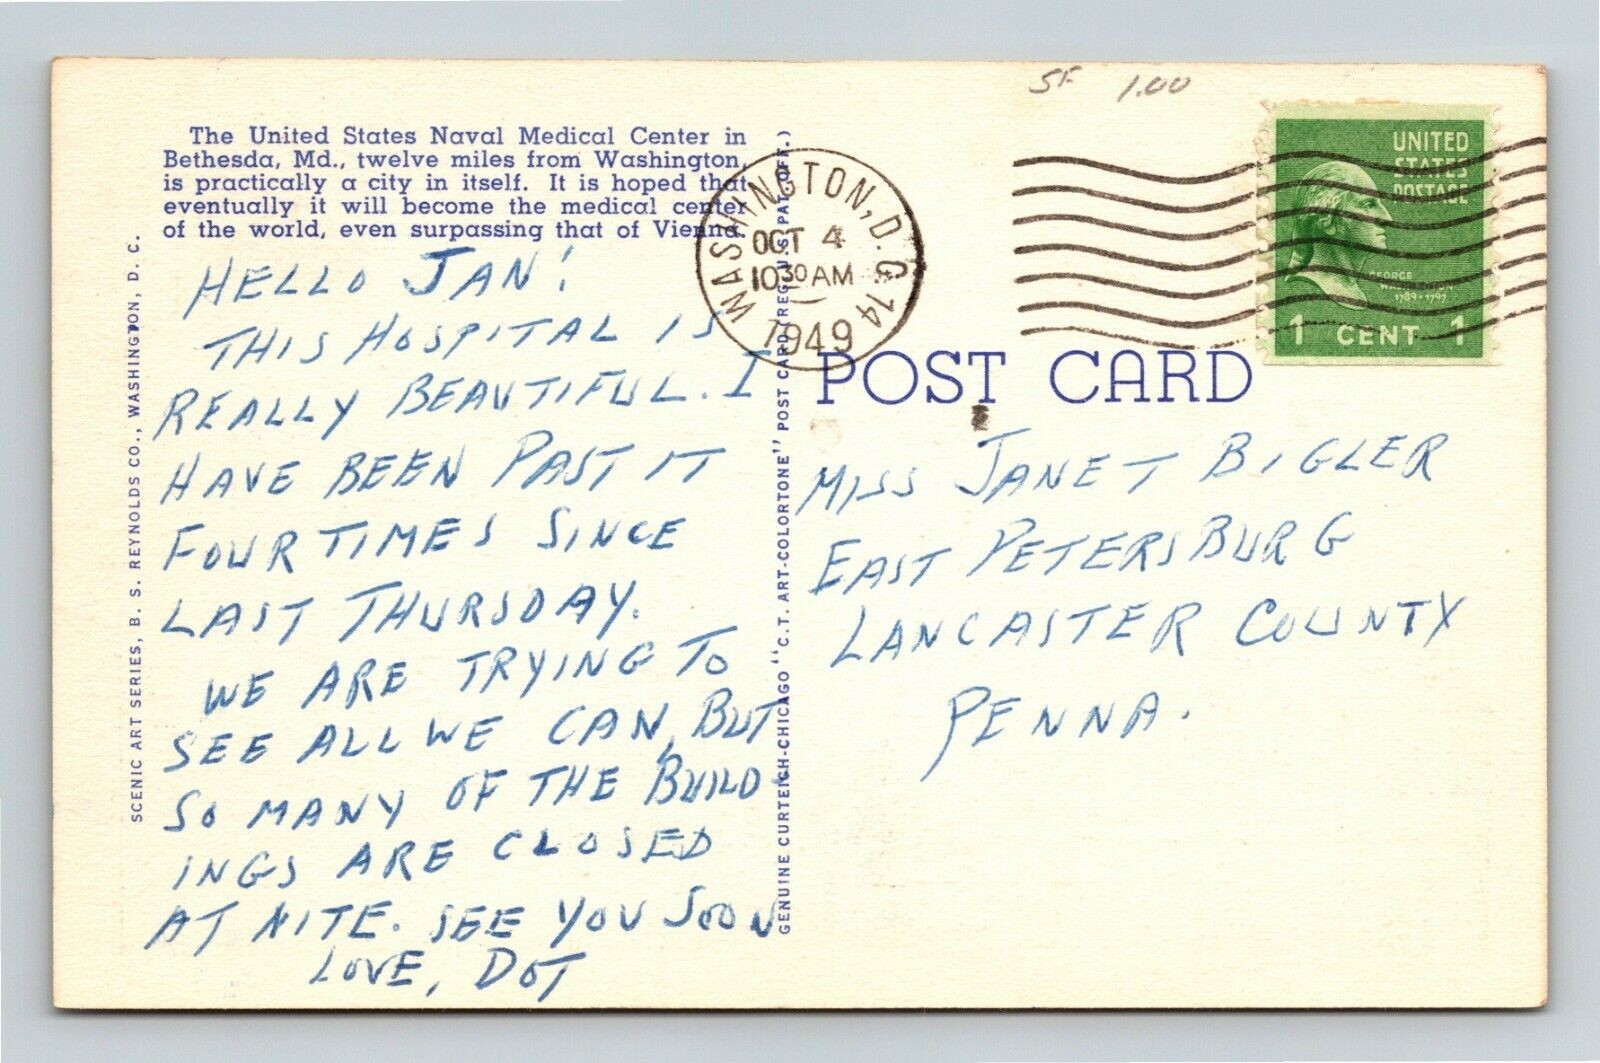 SF 1.00
The United States Naval Medical Center in
Bethesda, Md., twelve miles from Washington,
is practically a city in itself. It is hoped that
eventually it will become the medical center
of the world, even surpassing that of Vienna.
HELLO JAN!
THIS HOSPITAL IS
REALLY BEAUTIFUL. I
HAVE BEEN PAST IT
FOUR TIMES SINCE
LAST THURSDAY.
WE ARE TRYING TO
SEE ALL WE CAN, BUT
SO MANY OF THE BUILD-
INGS ARE CLOSED
AT NITE. SEE YOU SOON
LOVE, DOT
SCENIC ART SERIES, B. S. REYNOLDS CO., WASHINGTON, D. C.
GENUINE CURTEICH-CHICAGO "C.T. ART-COLORTONE" POST CARD (REG. U.S. PAT. OFF.)
WASHINGTON, D.C. 14
OCT 4
10 30 AM
1949
UNITED
STATES
POSTAGE
GEORGE
WASHINGTON
1789-1797
1 CENT 1
POST CARD
MISS JANET BIGLER
EAST PETERSBURG
LANCASTER COUNTY
PENNA.